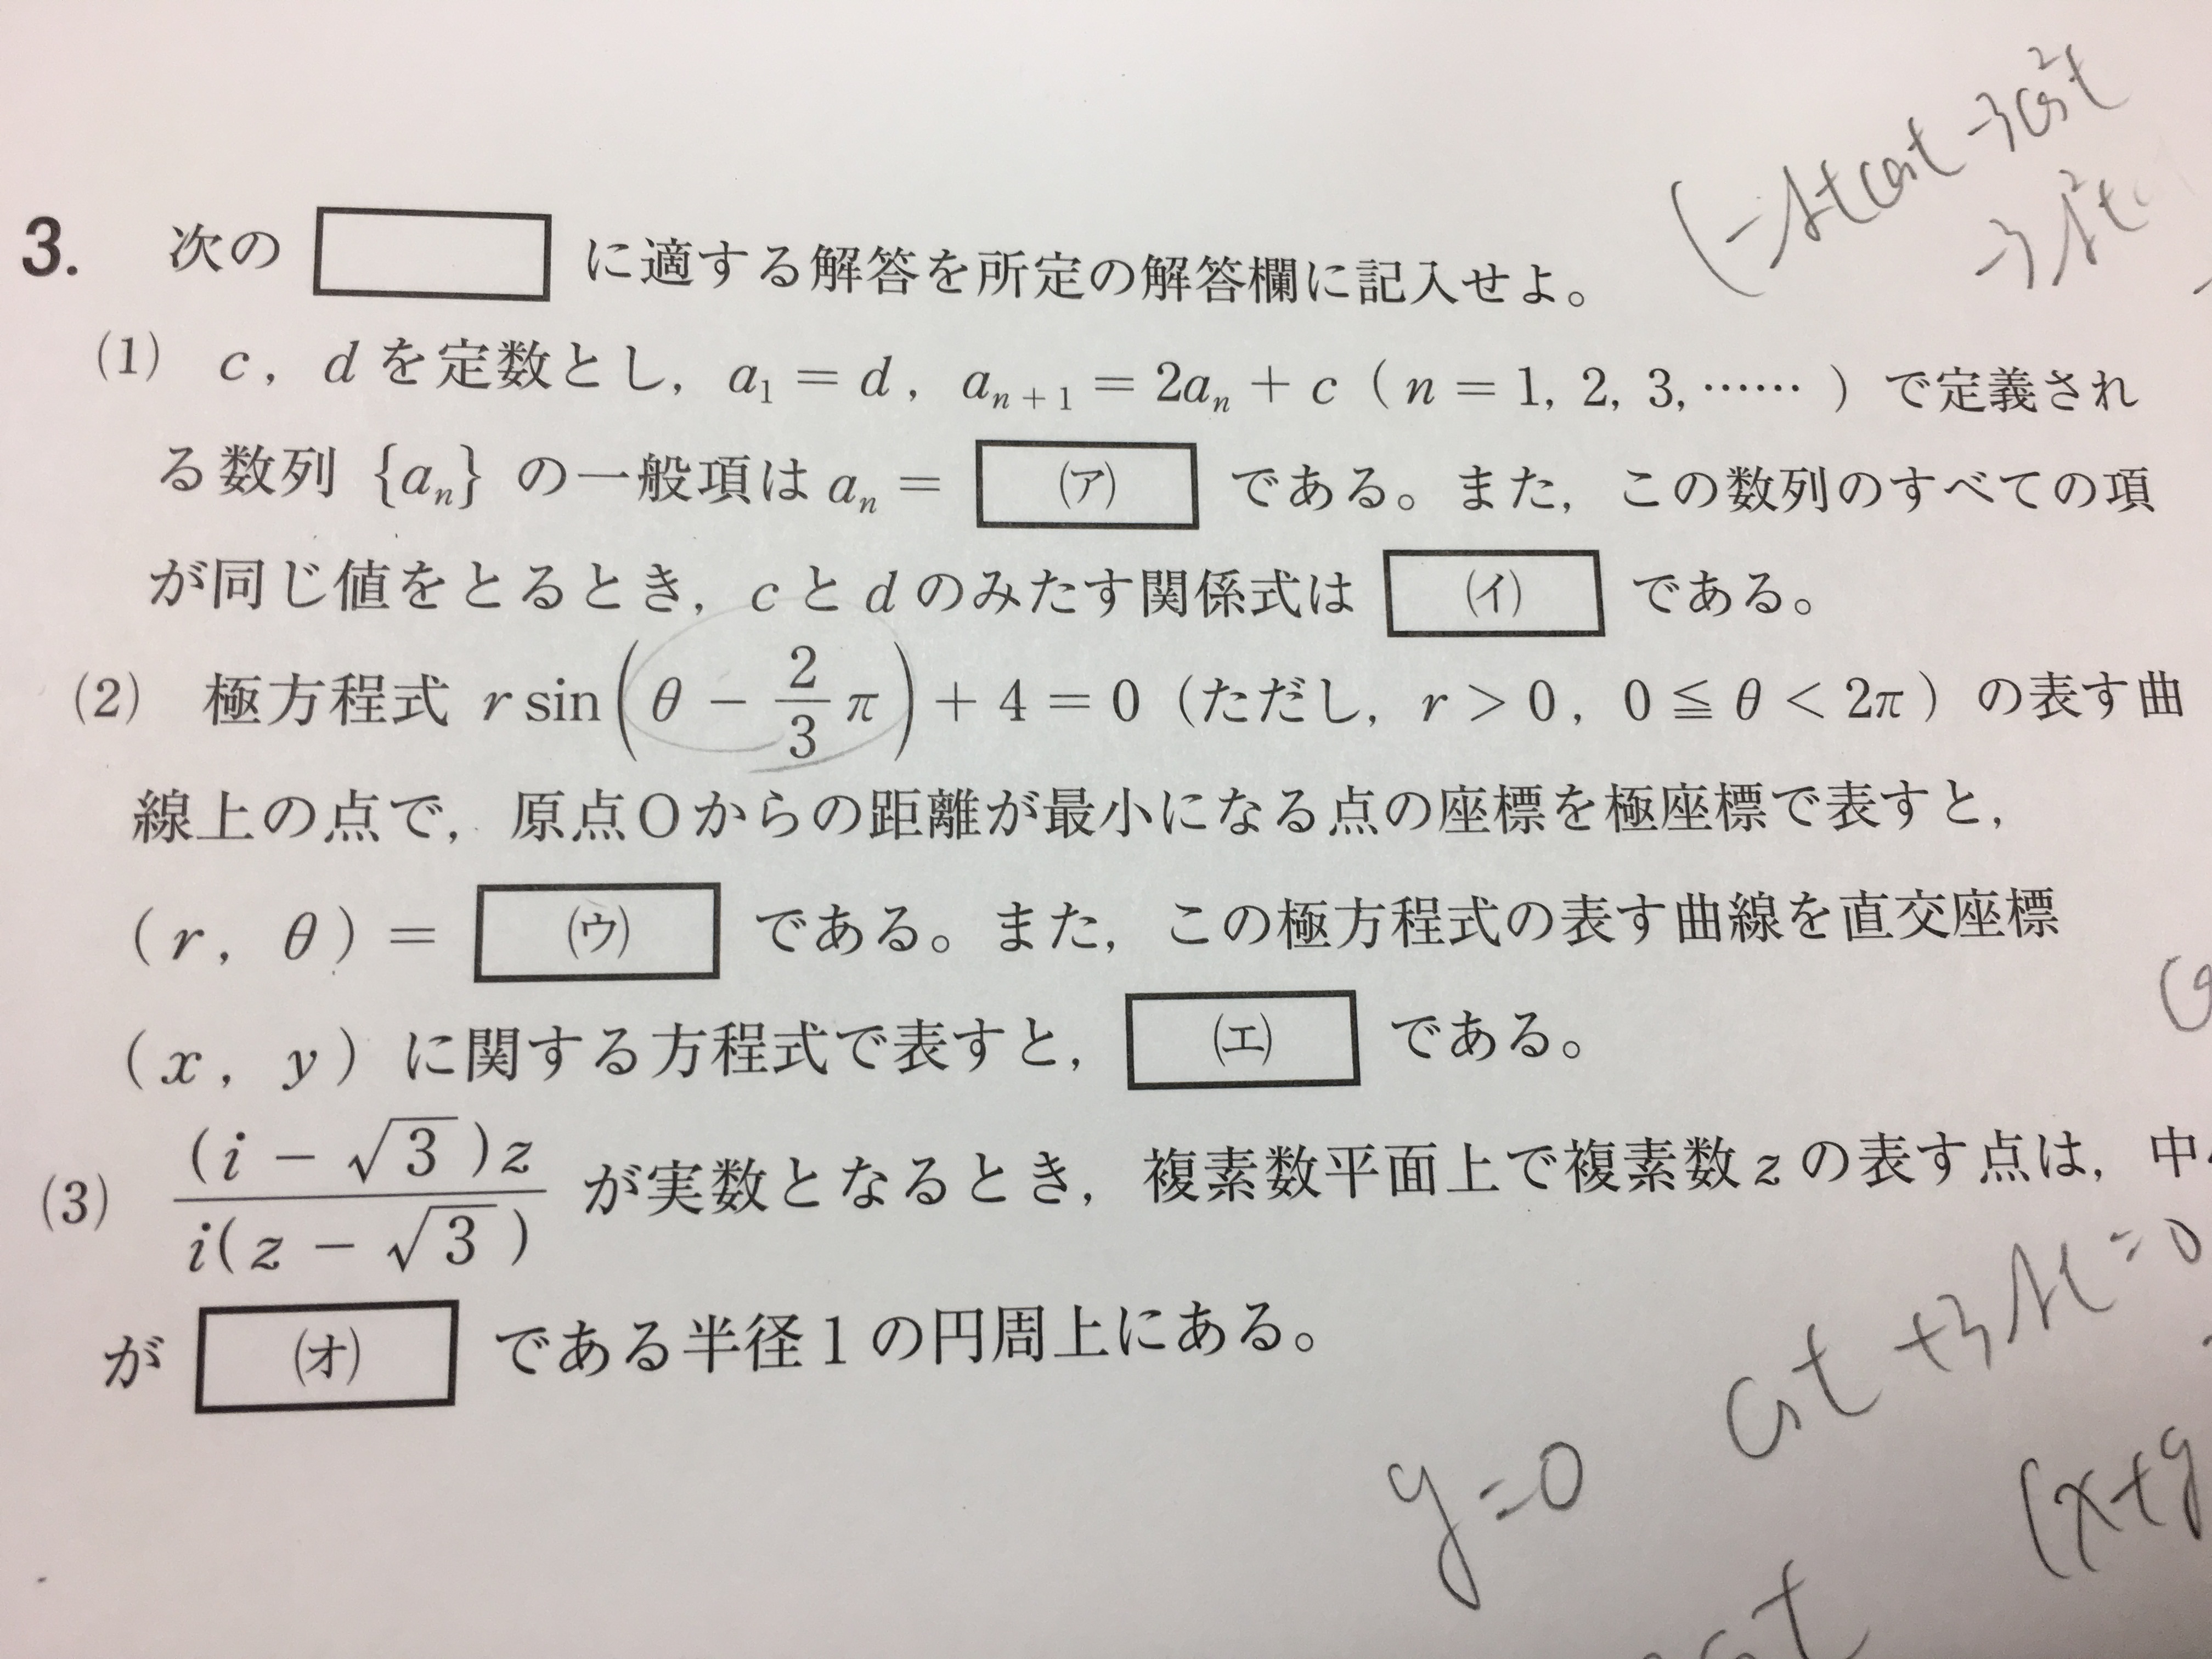 3. 次の に適する解答を所定の解答欄に記入せよ。
(1) c, d を定数とし, a₁ = d, aₙ₊₁ = 2aₙ + c ( n = 1, 2, 3, …… ) で定義され
る数列 {aₙ} の一般項は aₙ = (ア) である。また, この数列のすべての項
が同じ値をとるとき, c と d のみたす関係式は (イ) である。
(2) 極方程式 r sin(θ − 2/3 π) + 4 = 0 (ただし, r > 0, 0 ≦ θ < 2π) の表す曲
線上の点で, 原点Oからの距離が最小になる点の座標を極座標で表すと,
( r, θ ) = (ウ) である。また, この極方程式の表す曲線を直交座標
( x, y ) に関する方程式で表すと, (エ) である。
(3) (i − √3)z / i(z − √3) が実数となるとき, 複素数平面上で複素数 z の表す点は, 中
が (オ) である半径1の円周上にある。
y=0
(x+y